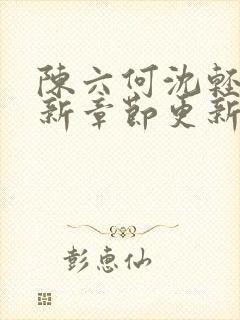 陳六何沈輕
新章節更新
彭惠仙